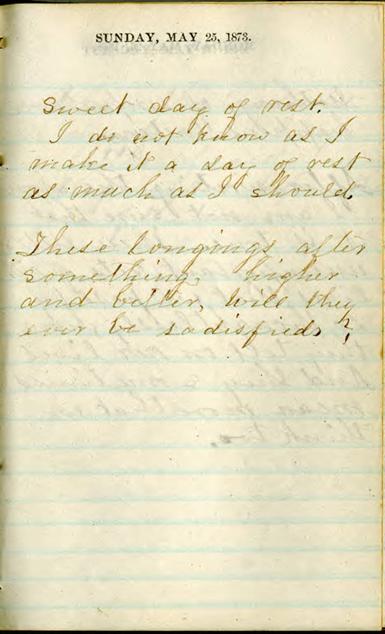 SUNDAY, MAY 25, 1873.
Sweet day of rest.
I do not know as I
make it a day of rest
as much as I should.
These longings after
something, higher
and better, will they
ever be sadisfied?